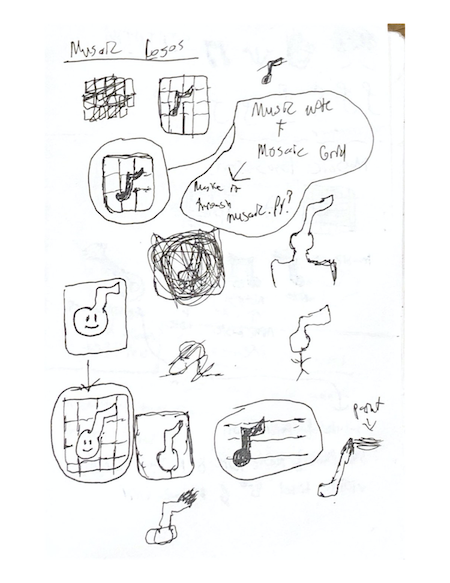 Musaic Logos
Music note
+
Mosaic Grid
Make it
through
musaic.py?
Paint